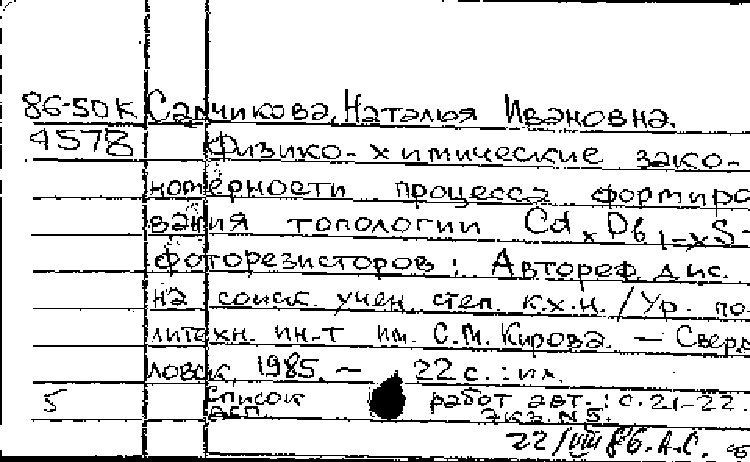 86-50К Салчикова, Наталья Ивановна.
4578 Физико-химические зако-
номерности процесса формиро
вания топологии CdₓPb₁₋ₓS-
фоторезисторов : Автореф. дис.
на соиск. учен. степ. к.х.н. / Ур. по-
литехн. ин-т им. С.М. Кирова. — Сверд
ловск, 1985. — 22 с. : ил.
5 Список работ авт.: с. 21-22.
ДСП. Экз. N5.
22/VIII 86. А.С.